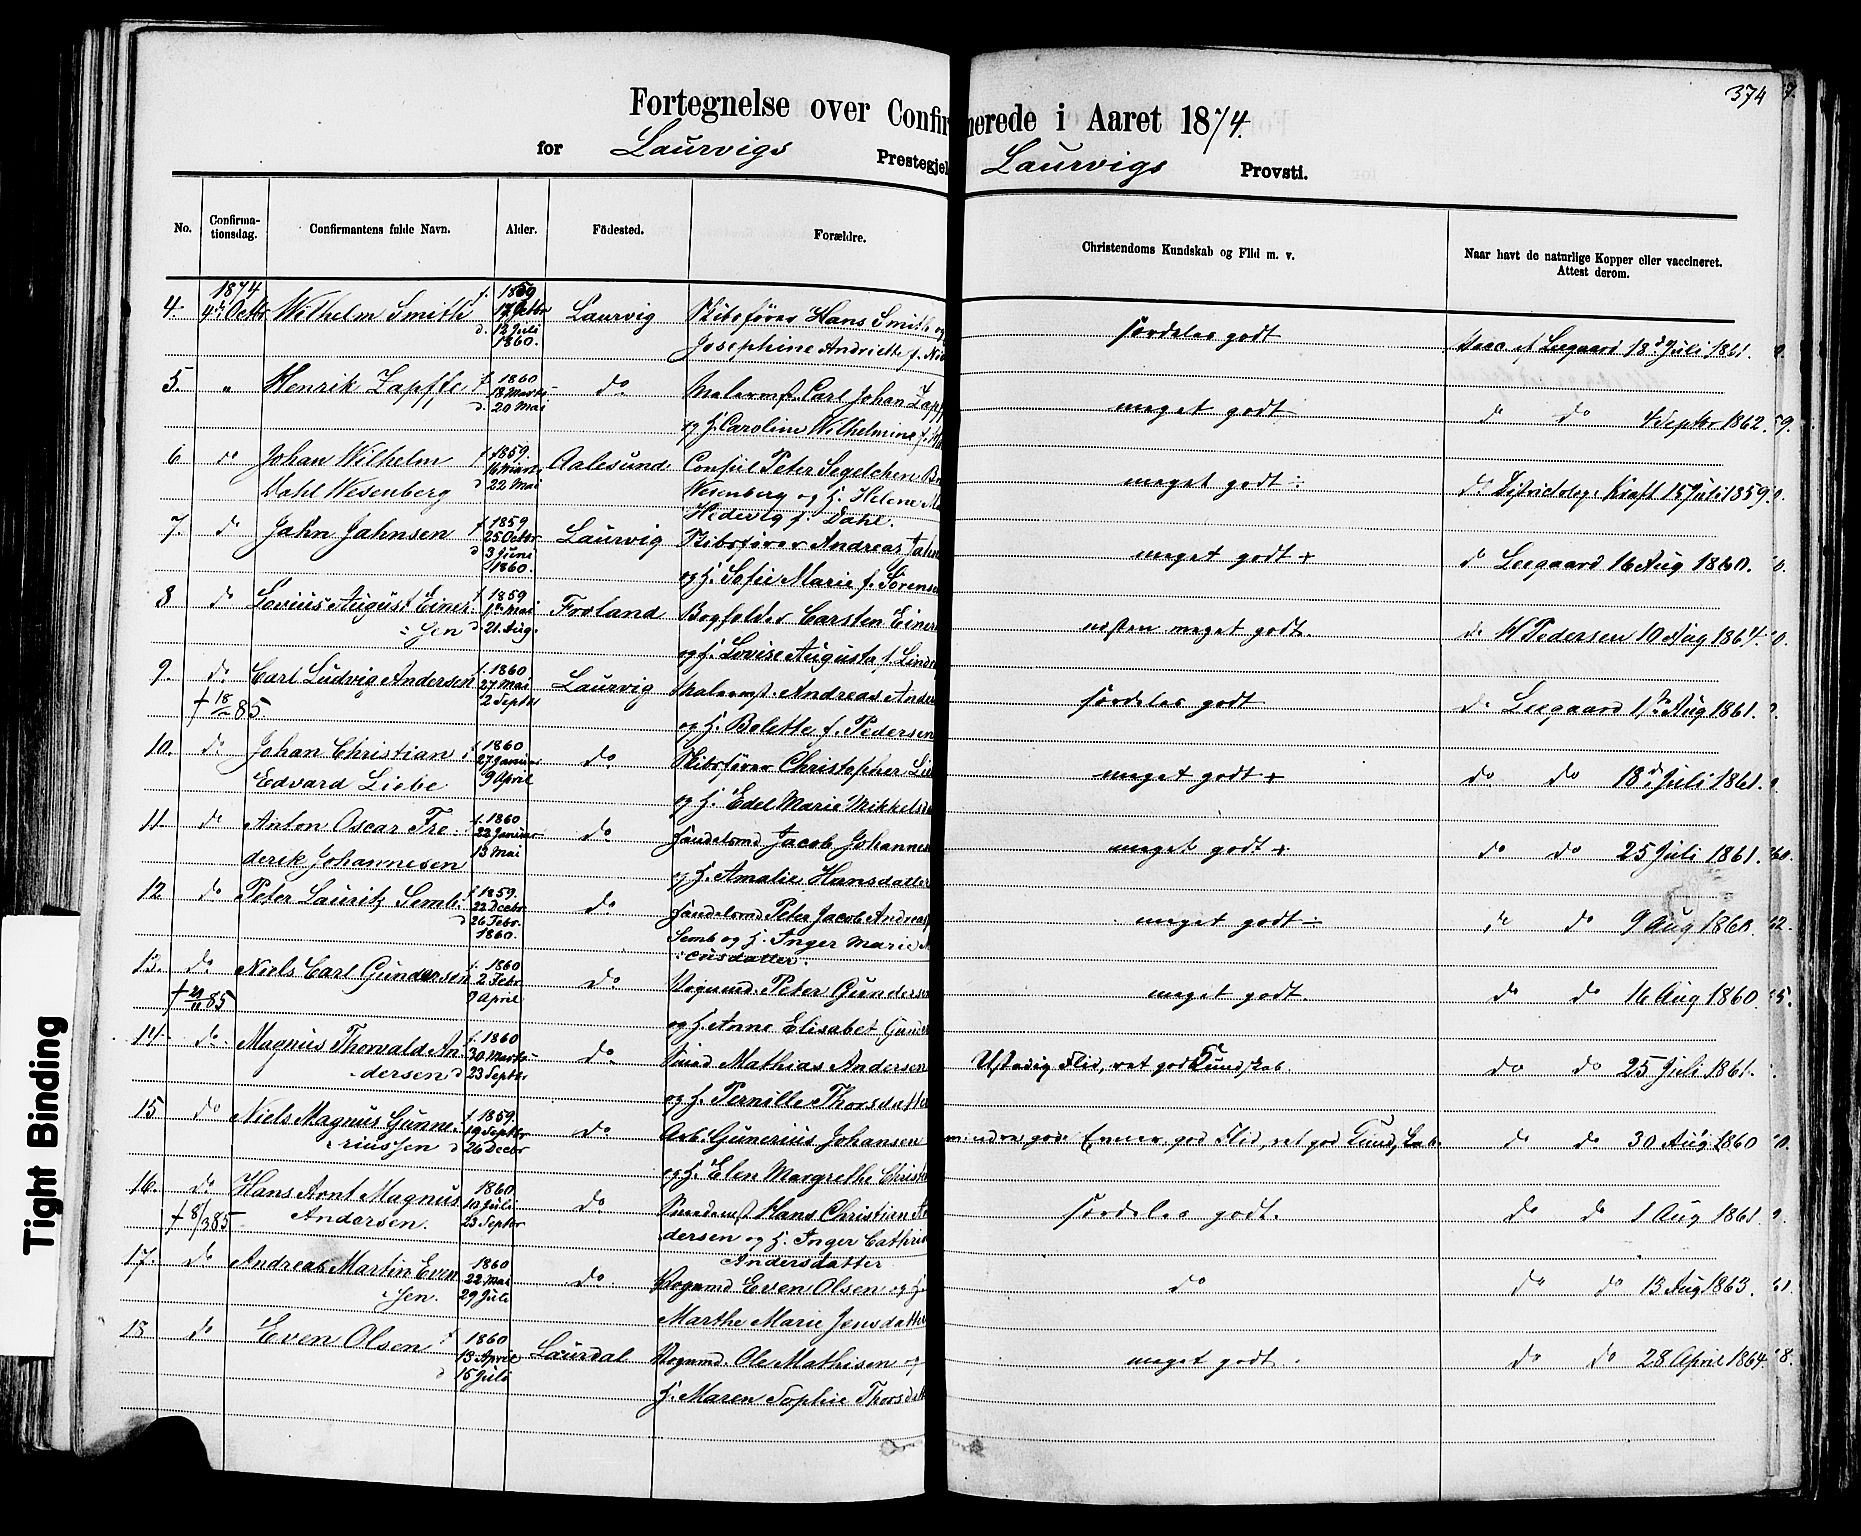 374
Fortegnelse over Confir merede i Aaret 1874.
for Laurvigs Prestegjel Laurvigs Provsti.
No. Confirma-tionsdag. Confirmantens fulde Navn. Alder. Födested. Forældre. Christendoms Kundskab og Flid m. v. Naar havt de naturlige Kopper eller vaccineret. Attest derom.
1874 f. 1859
4. 4de Octbr Wilhelm Smith 17 Octbr Laurvig Skibsfører Hans Smith og særdeles godt Vacc. af Leegaard 18d Juli 1861.
d. 12 Juli
1860. Josephine Andriette f.
5. " Henrik Zapffe f. 1860 do Malermst. Carl Johan Zapf meget godt d do 4 Septbr 1862.
18 Marts
d. 20 Mai og H. Caroline Wilhelmine f.
6 do Johan Wilhelm f. 1859. Aalesund Consul Peter Segelchen meget godt ÷ do Districtslæge Kraft 15 Juli 1859
16 Marts
Dahl Wesenberg d 22 Mai Wesenberg og H. Helene
Hedevig f. Dahl.
7. do Jahn Jahnsen f 1859. Laurvig Skibsfører Andreas Jahn meget godt + d Leegaard 16 Aug 1860.
25 Octbr
d 3 Juni
1860. og H. Sofie Marie f. Sørens
8 do Lovius August Einer f. 1859 Froland Bogholder Carsten Einer næsten meget godt. do W Pedersen 10 Aug 1864.
1ste Mai
sen d. 21. Aug. og H. Lovise Augusta f. Lind
9. do Carl Ludvig Andersen f. 1860 Laurvig Malermst. Andreas Ander særdeles godt do Leegaard 1ste Aug 1861.
27 Mai
† 18/ 85 2 Septbr og H. Bolette f. Pedersen
10. do Johan Christian f. 1860 do Skibsfører Christopher Lie meget godt + do do 18d Juli 1861.
27 Januar
Edvard Liebe 9 April og H. Edel Marie Mikkels
11. do Anton Oscar Fre f. 1860 do Handelsmd Jacob Johannes meget godt + do do 25 Juli 1861.
22 Januar
derik Johannesen 13 Mai og H. Amalie Hansdatter
12 do Peter Lauritz Semb. f 1859. do Handelsmd Peter Jacob Andreas meget godt ÷ do 9 Aug 1860.
22 Decbr
d 26 Febr. Semb og H. Inger Marie
1860. cusdatter.
13. do Niels Carl Gundersen f. 1860 do Vognmd. Peter Gunders meget godt. do do 16 Aug 1860
2 Febr
† 85 9 April og H. Anne Elisabet Gund
14 do. Magnus Thorvald An f. 1860 do Smed Mathias Andersen Ustadig Flid, ret god Kundskab. do do 25 Juli 1861.
30 Marts
dersen d 23 Septbr og H. Pernille Thorsdatte
15 do Niels Magnus Gunne f 1859. do Arb. Gunerius Johansen mindre god Evner, god Flid, ret god Kundskab. do do 30 Aug 1860
19 Septbr
riussen d 26 Decbr og H. Elen Margrethe Christ
16. do Hans Arnt Magnus 1860 do Smedemst Hans Christian særdeles godt. do do 1 Aug 1861
10 Juli
† 8/3 85 Andersen. 23 Septbr dersen og H. Inger Cathri
Andersdatter
17. do Andreas Martin Even 1860 do Vognmd Even Olsen og H do do do 13 Aug 1863.
22 Mai
sen. 29 Juli Marthe Marie Jensdatter
18 do Even Olsen f 1860 Laurdal Vognmd. Ole Mathisen og meget godt. do do 28 April 1864.
13 April
d 15 Juli H. Maren Sophie Thorsdatt
Tight Binding